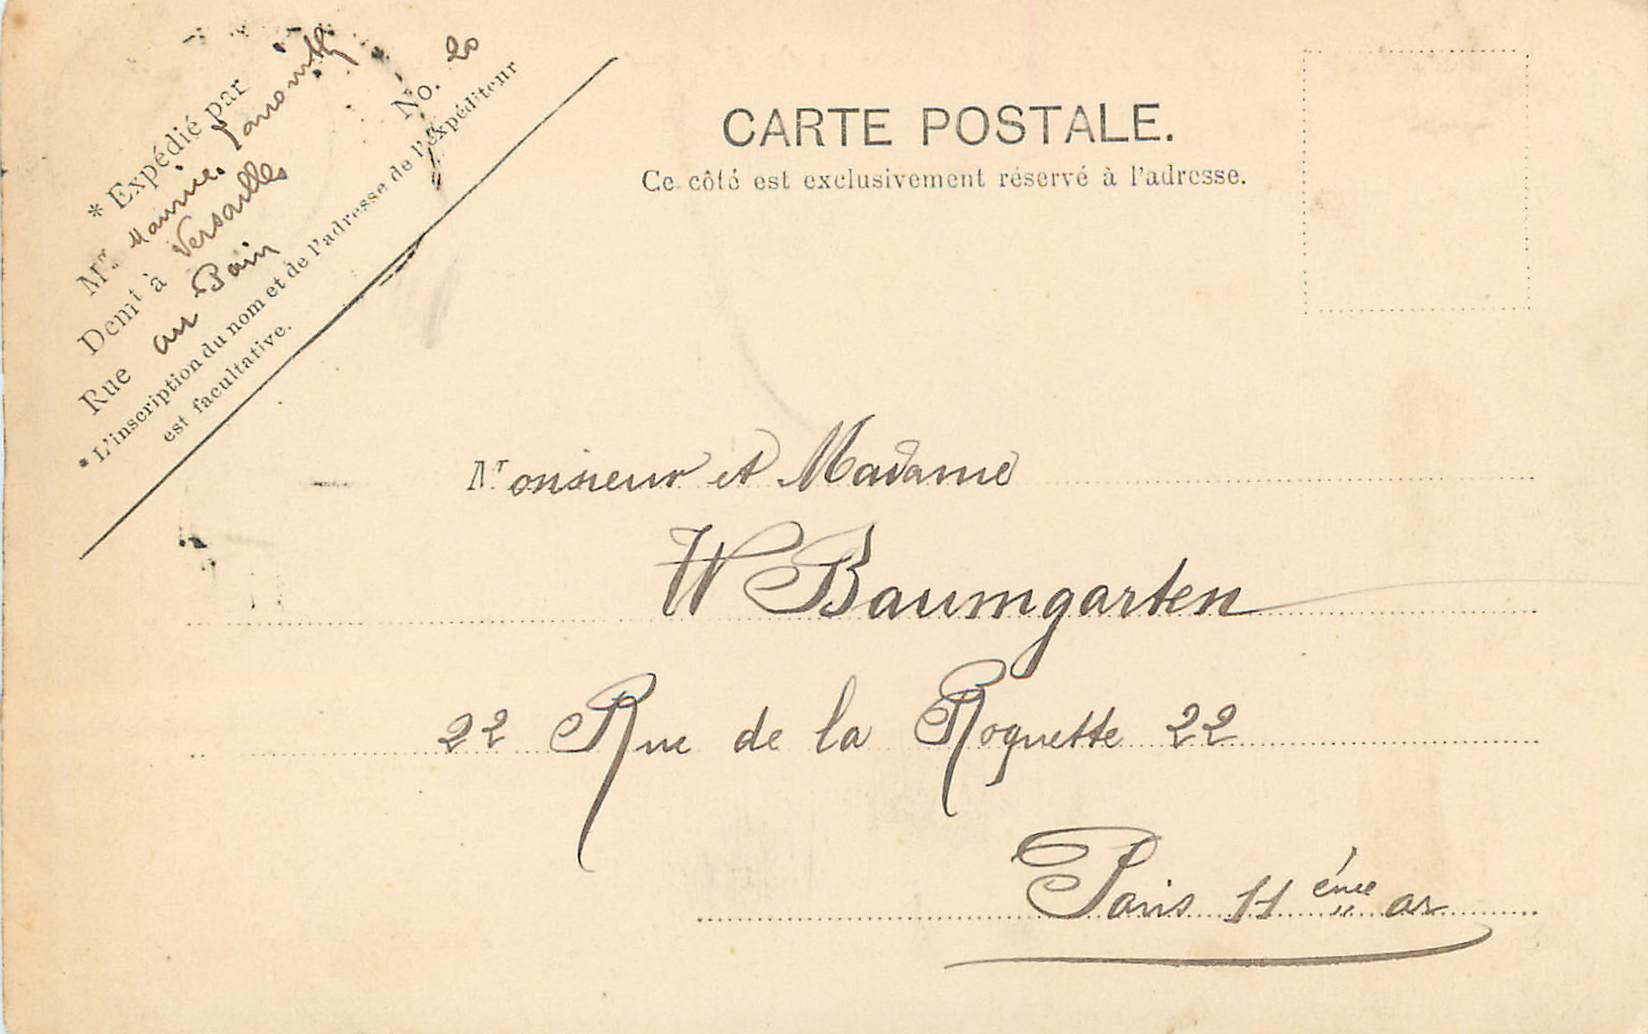 * Expédié par
Mr. Maurice
Demt à Versailles
Rue au Pain No. 20
* L'inscription du nom et de l'adresse de l'expéditeur
est facultative.
CARTE POSTALE.
Ce côté est exclusivement réservé à l'adresse.
Monsieur et Madame
W Baumgarten
22 Rue de la Roquette 22
Paris 11ème ar